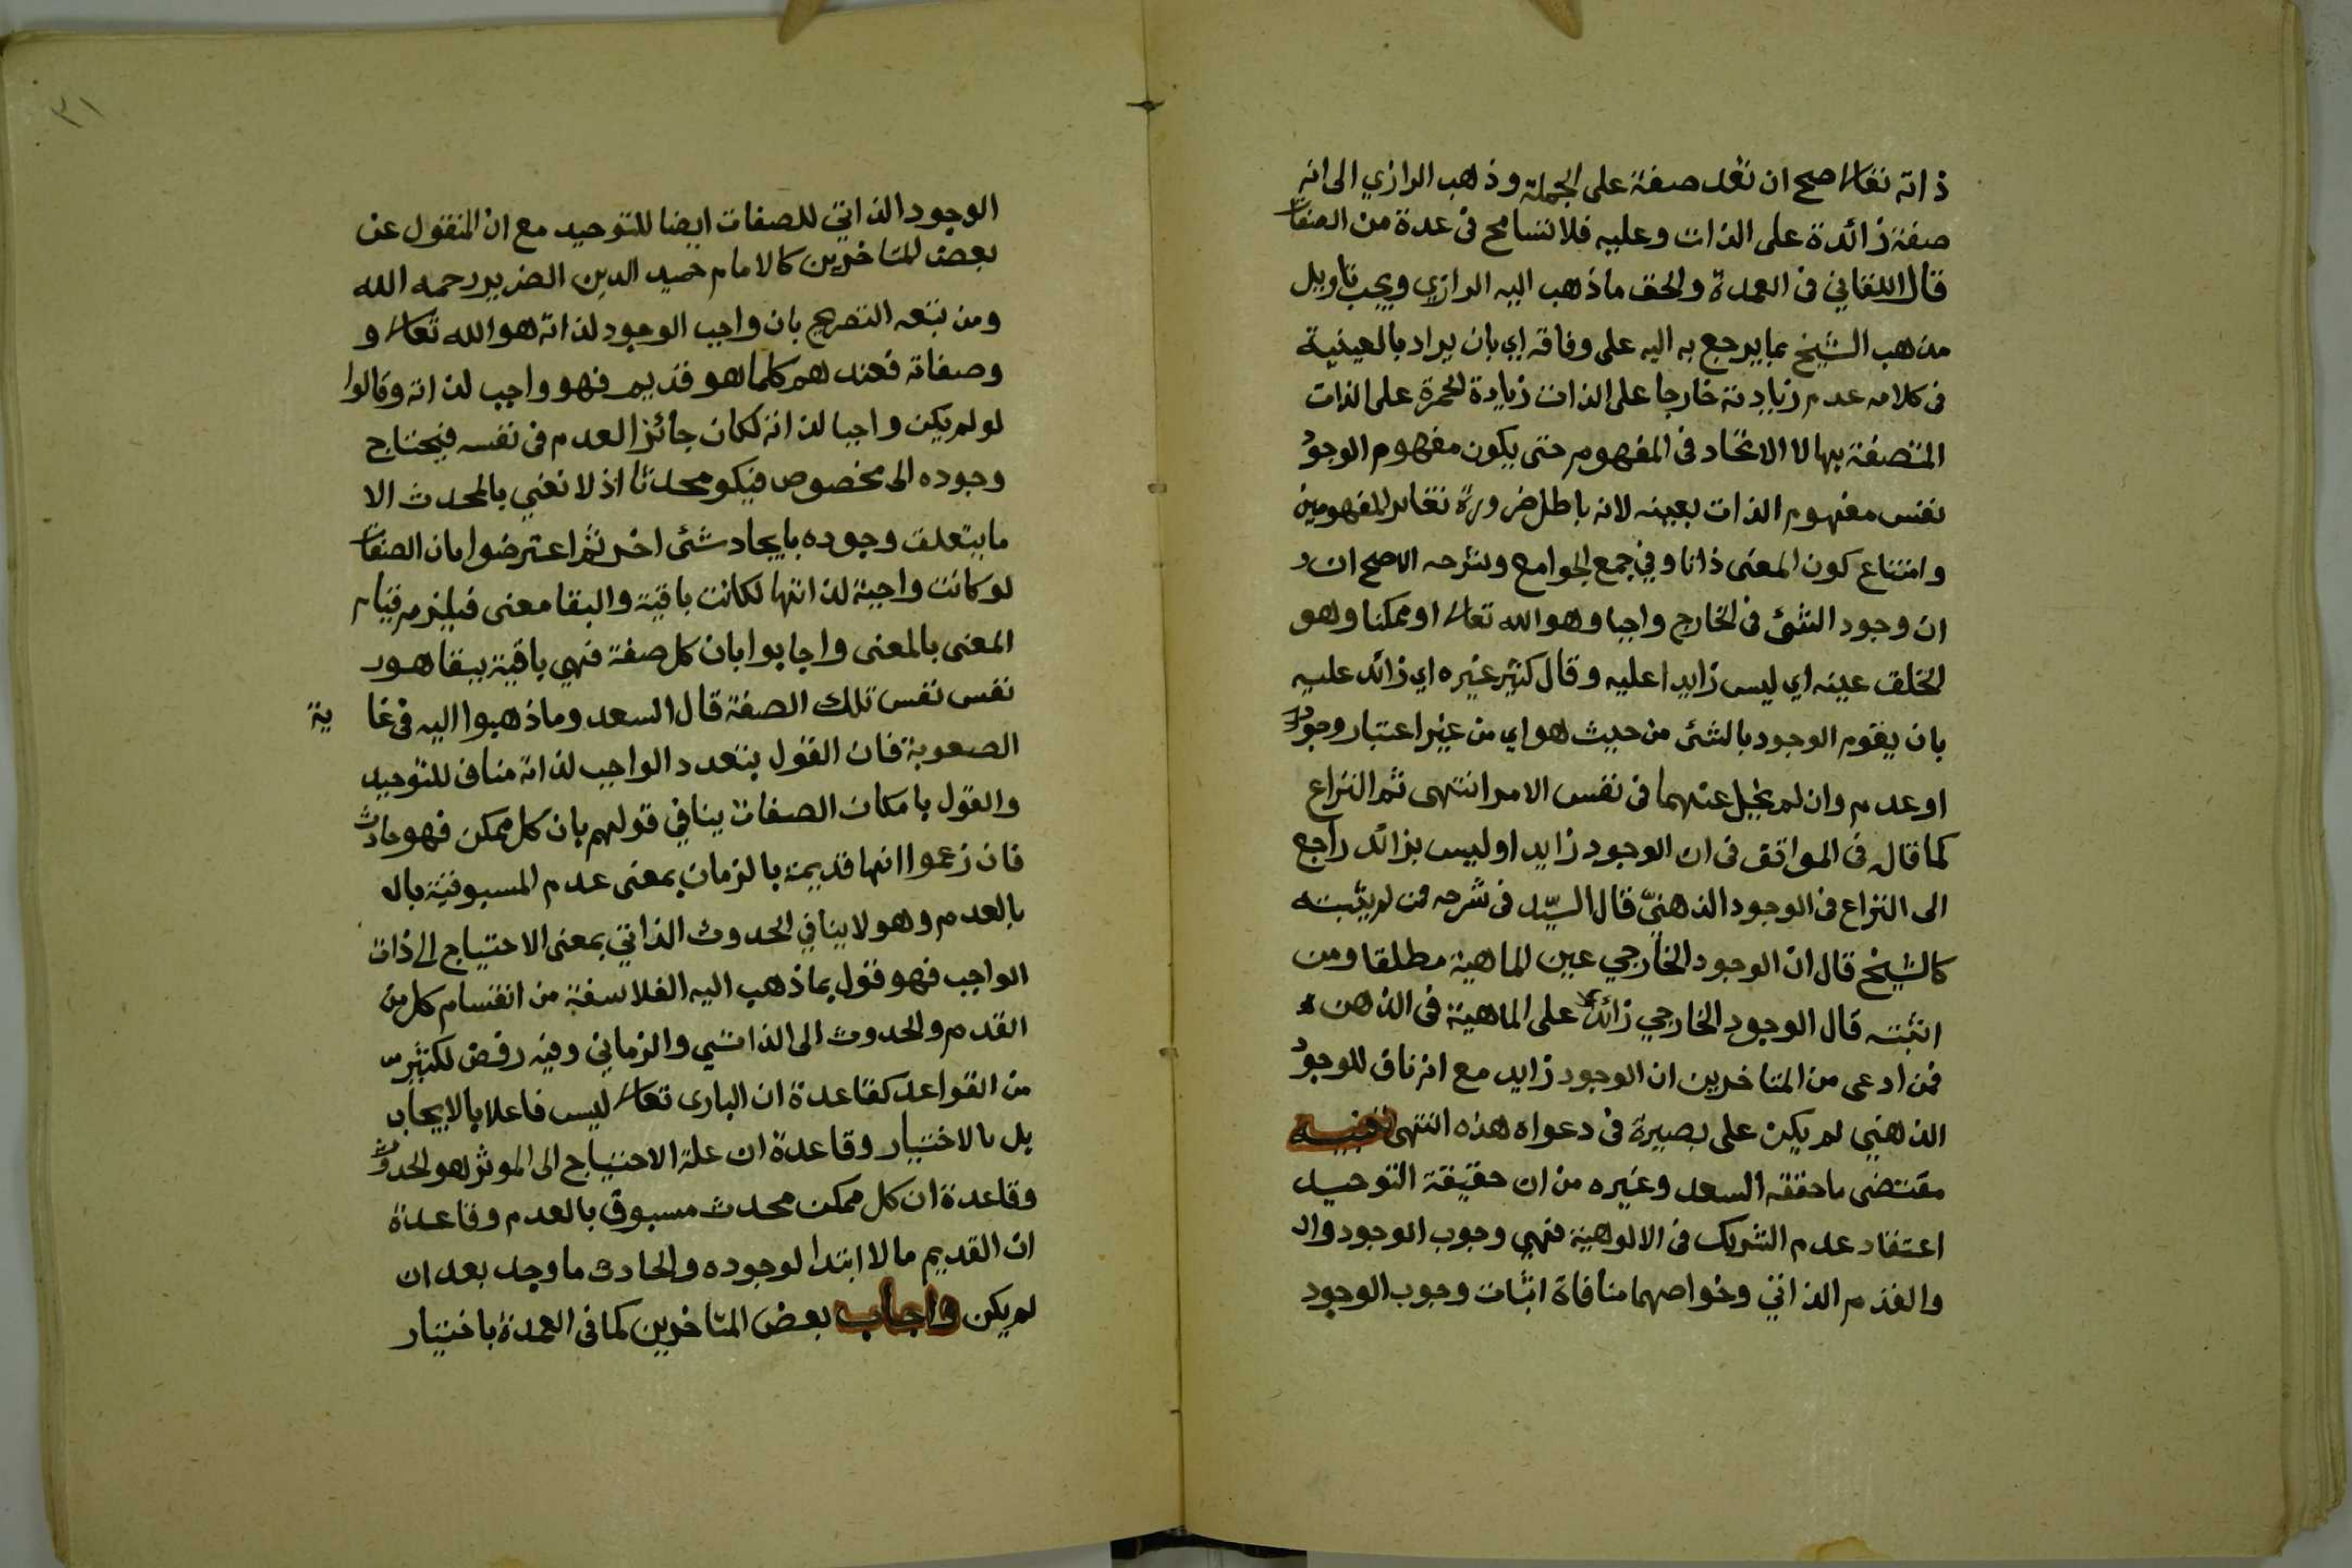 ذاته تعالى صح ان تعد صفة على الجملة وذهب الرازي الى انه
صفة زائدة على الذات وعليه فلا تسامح فى عدة من الصفات
قال اللقاني فى العمدة والحق ما ذهب اليه الرازي ويجب تاويل
مذهب الشيخ بما يرجع به اليه على وفاقه اي بان يراد بالعينية
فى كلامه عدم زيادته خارجا على الذات زيادة الحمرة على الذات
المتصفة بها لا الاتحاد فى المفهوم حتى يكون مفهوم الوجود
نفس مفهوم الذات بعينه لانه باطل ضرورة تغاير المفهومين
وامتناع كون المعنى ذاتا وفي جمع الجوامع وشرحه الاصح ان
ان وجود الشئ فى الخارج واجبا وهو الله تعالى او ممكنا وهو
الخلق عينه اي ليس زايدا عليه وقال كثير غيره اي زائد عليه
بان يقوم الوجود بالشئ من حيث هو اي من غير اعتبار وجود
او عدم وان لم يخل عنهما فى نفس الامر انتهى ثم النزاع
كما قال فى المواقف فى ان الوجود زايد او ليس بزائد راجع
الى النزاع فى الوجود الذهنيّ قال السيّد فى شرحه فمن لم يثبته
كالشيخ قال ان الوجود الخارجي عين الماهية مطلقا ومن
اثبته قال الوجود الخارجي زائد على الماهية فى الذهن
فمن ادعى من المتاخرين ان الوجود زايد مع انه ناف للوجود
الذهني لم يكن على بصيرة فى دعواه هذه انتهى تنبيه
مقتضى ما حققه السعد وغيره من ان حقيقة التوحيد
اعتقاد عدم الشريك فى الالوهية فهي وجوب الوجود وال
والقدم الذاتي وخواصهما منافاة اثبات وجوب الوجود
٣١
الوجود الذاتي للصفات ايضا للتوحيد مع ان المنقول عن
بعض المتاخرين كالامام حميد الدين الضرير رحمه الله
ومن تبعه التصريح بان واجب الوجود لذاته هو الله تعالى و
وصفاته فعندهم كلما هو قديم فهو واجب لذاته وقالوا
لو لم يكن واجبا لذاته لكان جائز العدم فى نفسه فيحتاج
وجوده الى مخصوص فيكو محدثا اذ لا نعني بالمحدث الا
ما يتعلق وجوده بايجاد شئ اخر ثم اعترضوا بان الصفات
لو كانت واجبة لذاتها لكانت باقية والبقا معنى فيلزم قيام
المعنى بالمعنى واجابوا بان كل صفة فهي باقية ببقا هو
نفس نفس تلك الصفة قال السعد وما ذهبوا اليه فى غا ية
الصعوبة فان القول بتعدد الواجب لذاته مناف للتوحيد
والقول بامكان الصفات ينافي قولهم بان كل ممكن فهو حادث
فان زعموا انها قديمة بالزمان بمعنى عدم المسبوقية بال
بالعدم وهو لا ينافي الحدوث الذاتي بمعنى الاحتياج الى ذات
الواجب فهو قول بما ذهب اليه الفلاسفة من انقسام كل من
القدم والحدوث الى الذاتي والزماني وفيه رفض لكثير
من القواعد كقاعدة ان البارى تعالى ليس فاعلا بالايجاب
بل بالاختيار وقاعدة ان علة الاحتياج الى الموثر هو الحدوث
وقاعدة ان كل ممكن محدث مسبوق بالعدم وقاعدة
ان القديم ما لا ابتدا لوجوده والحادث ما وجد بعد ان
لم يكن واجاب بعض المتاخرين كما فى العمدة باختيار